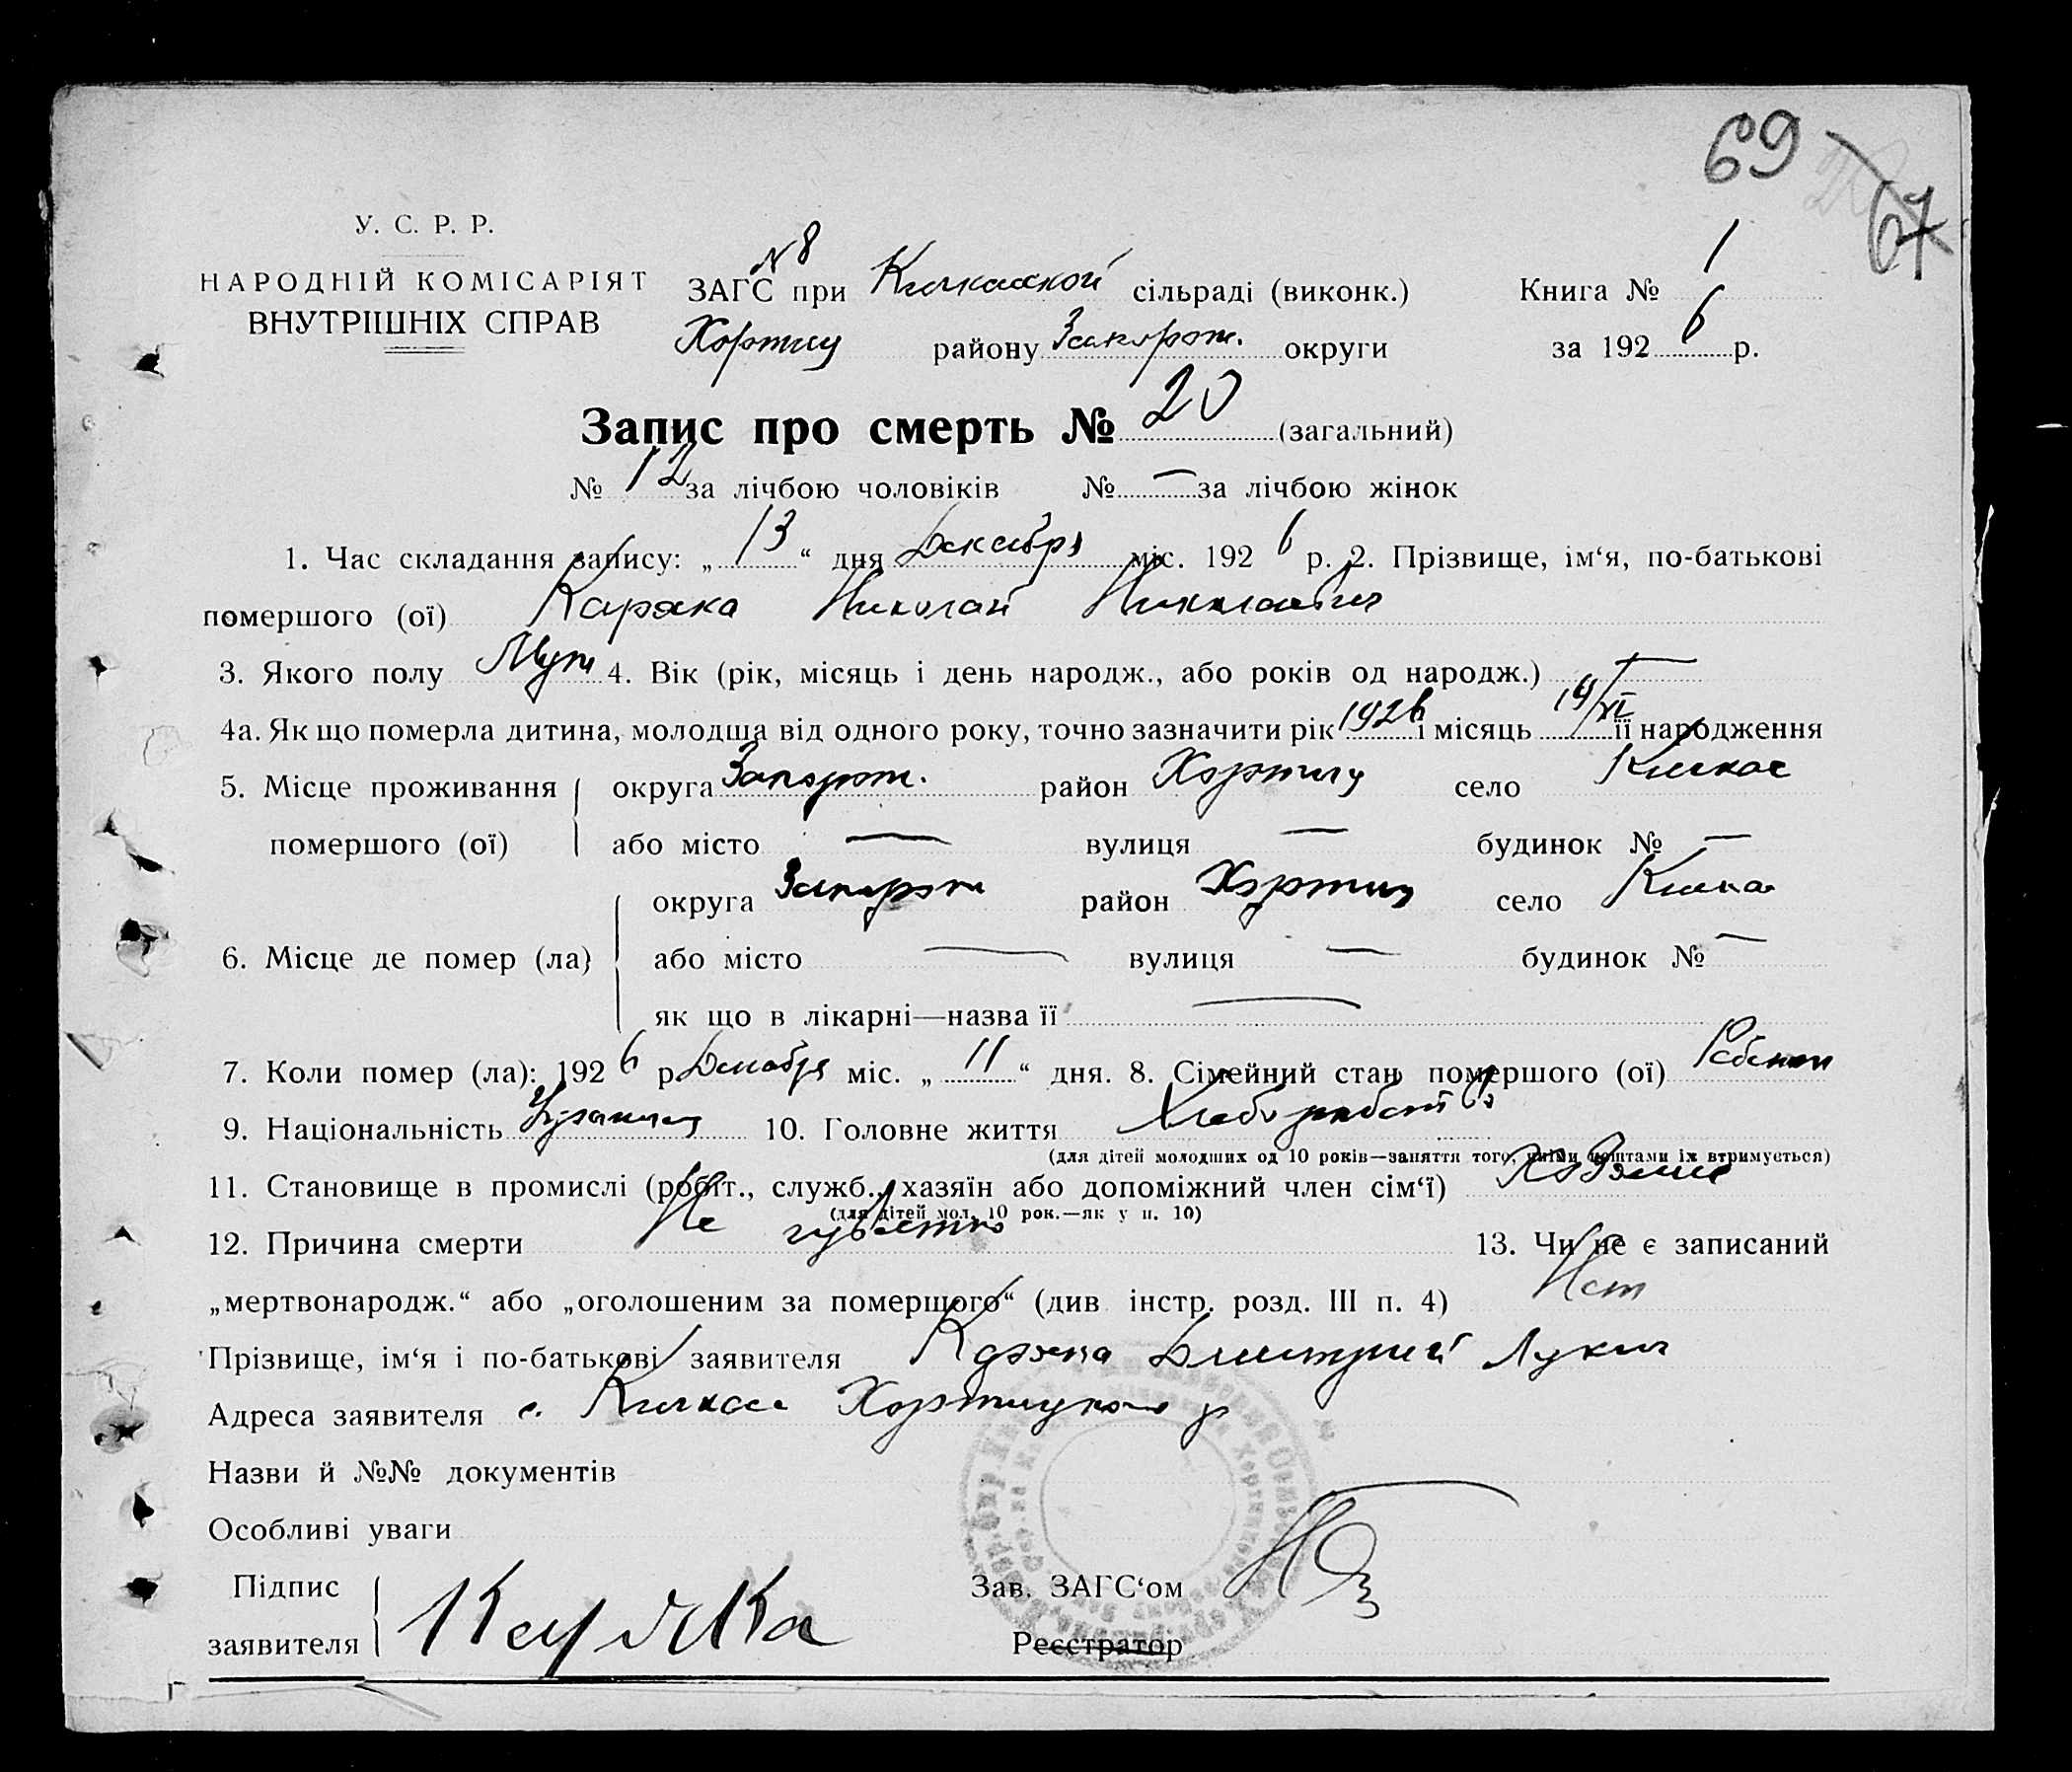 69 67
У. С. Р. Р.
НАРОДНІЙ КОМІСАРІЯТ
ВНУТРІШНІХ СПРАВ
N 8
ЗАГС при Кичкасской сільраді (виконк.) Книга № 1
Хортиц району Запорож. округи за 1926 р.
Запис про смерть № 20 (загальний)
№ 12 за лічбою чоловіків № — за лічбою жінок
1. Час складання запису: „ 13 “ дня Декабря міс. 1926 р. 2. Прізвище, ім‘я, по-батькові
помершого (ої) Каряка Николай Николаевич
3. Якого полу Муж 4. Вік (рік, місяць і день народж., або років од народж.) —
4а. Як що померла дитина, молодша від одного року, точно зазначити рік 1926 і місяць 19/XI її народження
5. Місце проживання округа Запорож. район Хортиц село Кичкас
помершого (ої) або місто — вулиця — будинок № —
округа Запорож район Хортиц село Кичкас
6. Місце де помер (ла) або місто — вулиця — будинок № —
як що в лікарні—назва її —
7. Коли помер (ла): 1926 р. Декабря міс. „ 11 “ дня. 8. Сімейний стан помершого (ої) Ребенок
9. Національність 10. Головне життя
(для дітей молодших од 10 років—заняття того, чиїми коштами їх втримується)
11. Становище в промислі (робіт., служб., хазяїн або допоміжний член сім‘ї)
(для дітей мол. 10 рок.—як у п. 10)
12. Причина смерти Не 13. Чи не є записаний
„мертвонародж.“ або „оголошеним за помершого“ (див. інстр. розд. III п. 4) Нет
Прізвище, ім‘я і по-батькові заявителя Каряка Дмитрий Лукич
Адреса заявителя с. Кичкас Хортицкого р
Назви й №№ документів
Особливі уваги
Підпис Зав. ЗАГС‘ом
заявителя Каряка Реєстратор